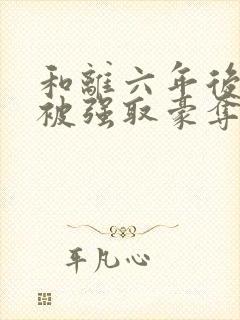 和離六年後
被强取豪奪
平凡心